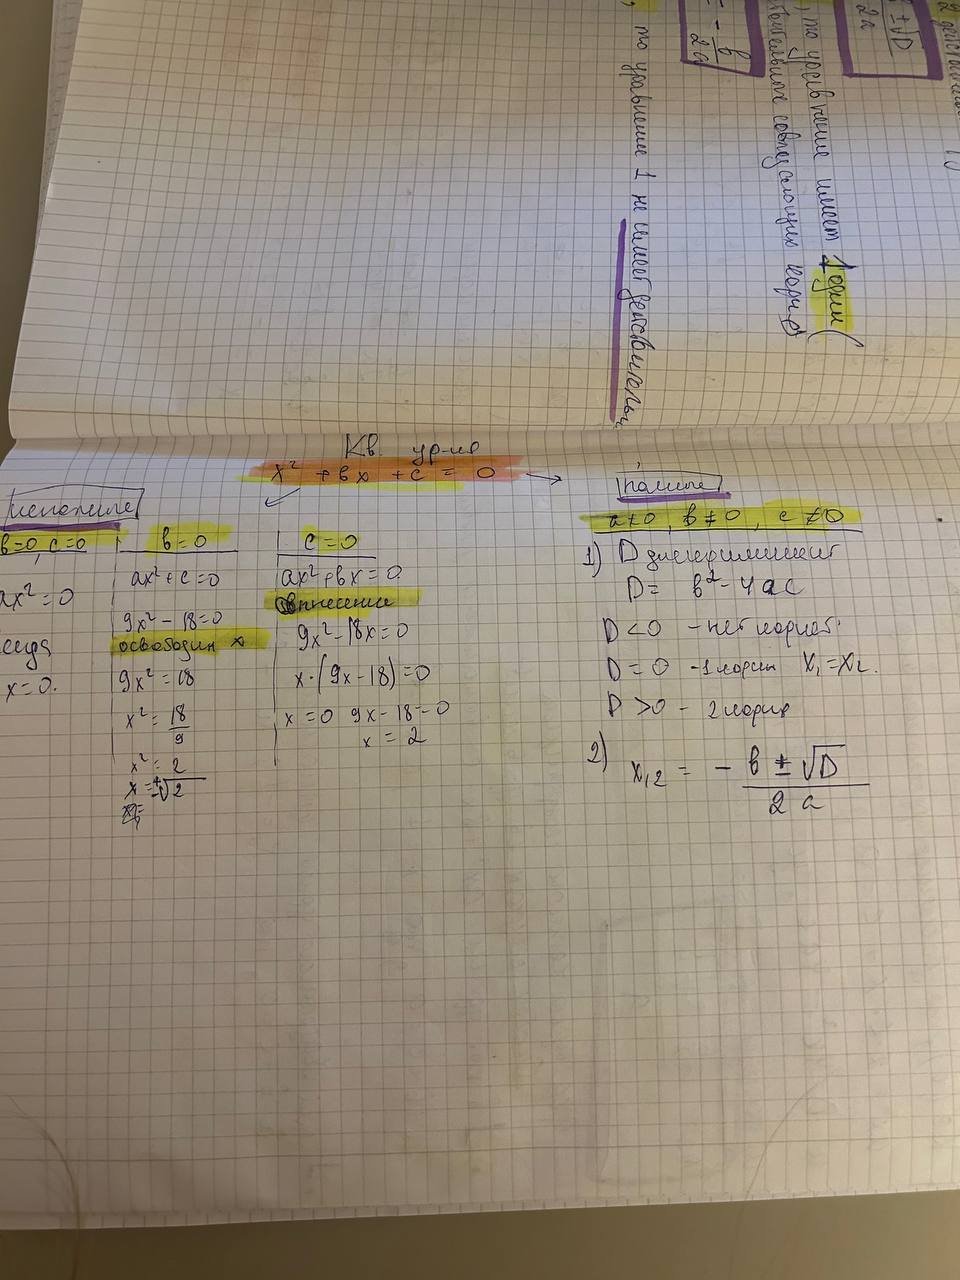 2 действител
b ± √D
2a
, то уравнение имеет 1 один (
совпадающих корня
= - b
2a
, то уравнение 1 не имеет действительн
Кв. ур-ие
x² + bx + c = 0
неполные
b=0, c=0
ax² = 0
всегда
x = 0.
b = 0
ax² + c = 0
9x² - 18 = 0
освободим x
9x² = 18
x² = 18
9
x² = 2
x = ±√2
c = 0
ax² + bx = 0
вынесение
9x² - 18x = 0
x·(9x - 18) = 0
x = 0 9x - 18 = 0
x = 2
полные
a ≠ 0, b ≠ 0, c ≠ 0
1) D дискриминант
D = b² - 4ac
D < 0 - нет корней
D = 0 - 1 корень x₁ = x₂.
D > 0 - 2 корня
2)
x₁,₂ = - b ± √D
2a